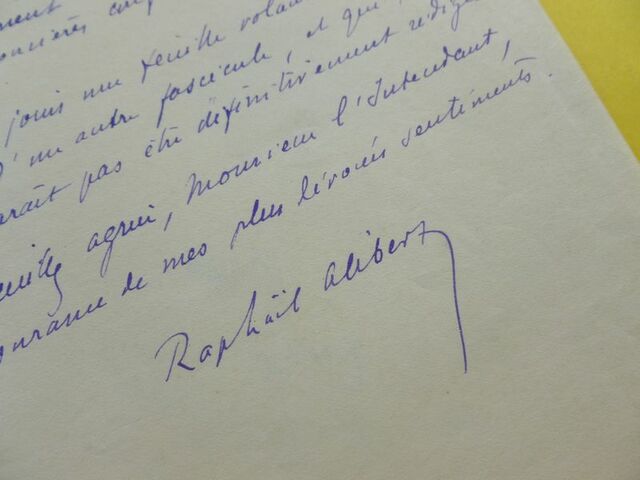 ment
jours une feuille volan
d'un autre fascicule, et que
raît pas être définitivement rédigé
euillez agréer, Monsieur l'Intendant,
urance de mes plus dévoués sentiments.
Raphaël Alibert